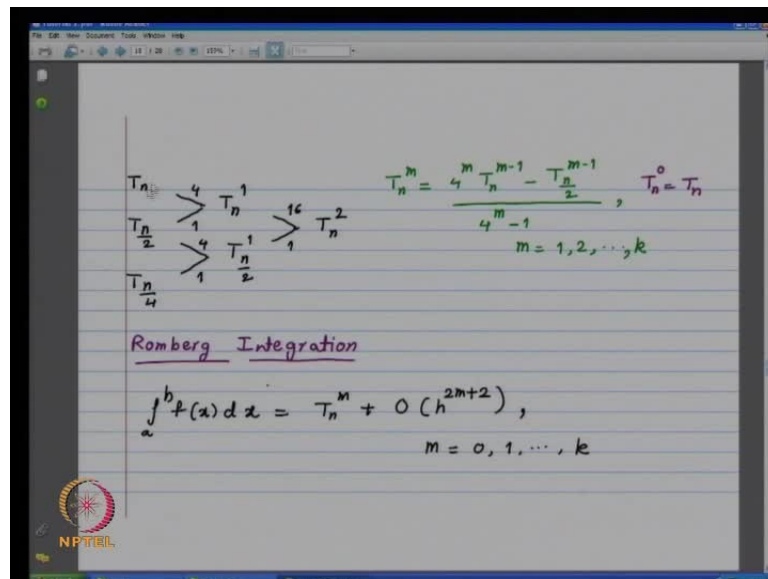 File Edit View Document Tools Window Help
T_n
4
1
T_n^1
T_{n/2}
16
1
T_n^2
4
1
T_{n/2}^1
T_{n/4}
T_n^m = \frac{4^m T_n^{m-1} - T_{n/2}^{m-1}}{4^m - 1} , T_n^0 = T_n
m = 1, 2, ..., k
Romberg Integration
∫_a^b f(x) dx = T_n^m + O(h^{2m+2}) ,
m = 0, 1, ..., k
NPTEL